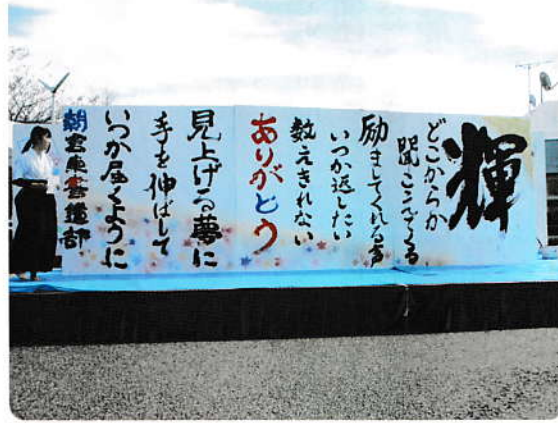 輝
どこからか
聞こえてくる
励ましてくれる声
いつか返したい
数えきれない
ありがとう
見上げる夢に
手を伸ばして
いつか届くように
朝倉東書道部